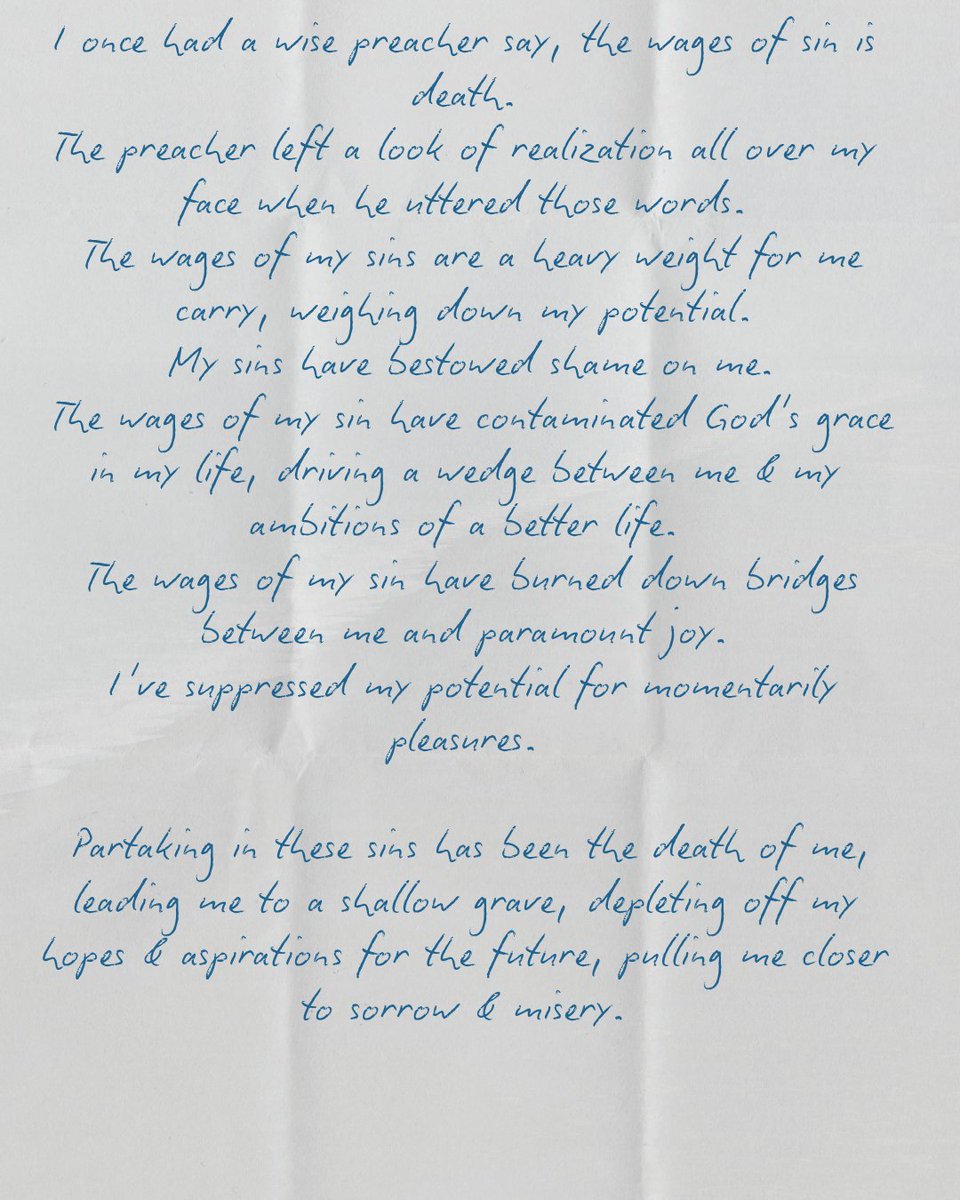 I once had a wise preacher say, the wages of sin is
death.
The preacher left a look of realization all over my
face when he uttered those words.
The wages of my sins are a heavy weight for me
carry, weighing down my potential.
My sins have bestowed shame on me.
The wages of my sin have contaminated God's grace
in my life, driving a wedge between me & my
ambitions of a better life.
The wages of my sin have burned down bridges
between me and paramount joy.
I've suppressed my potential for momentarily
pleasures.
Partaking in these sins has been the death of me,
leading me to a shallow grave, depleting off my
hopes & aspirations for the future, pulling me closer
to sorrow & misery.